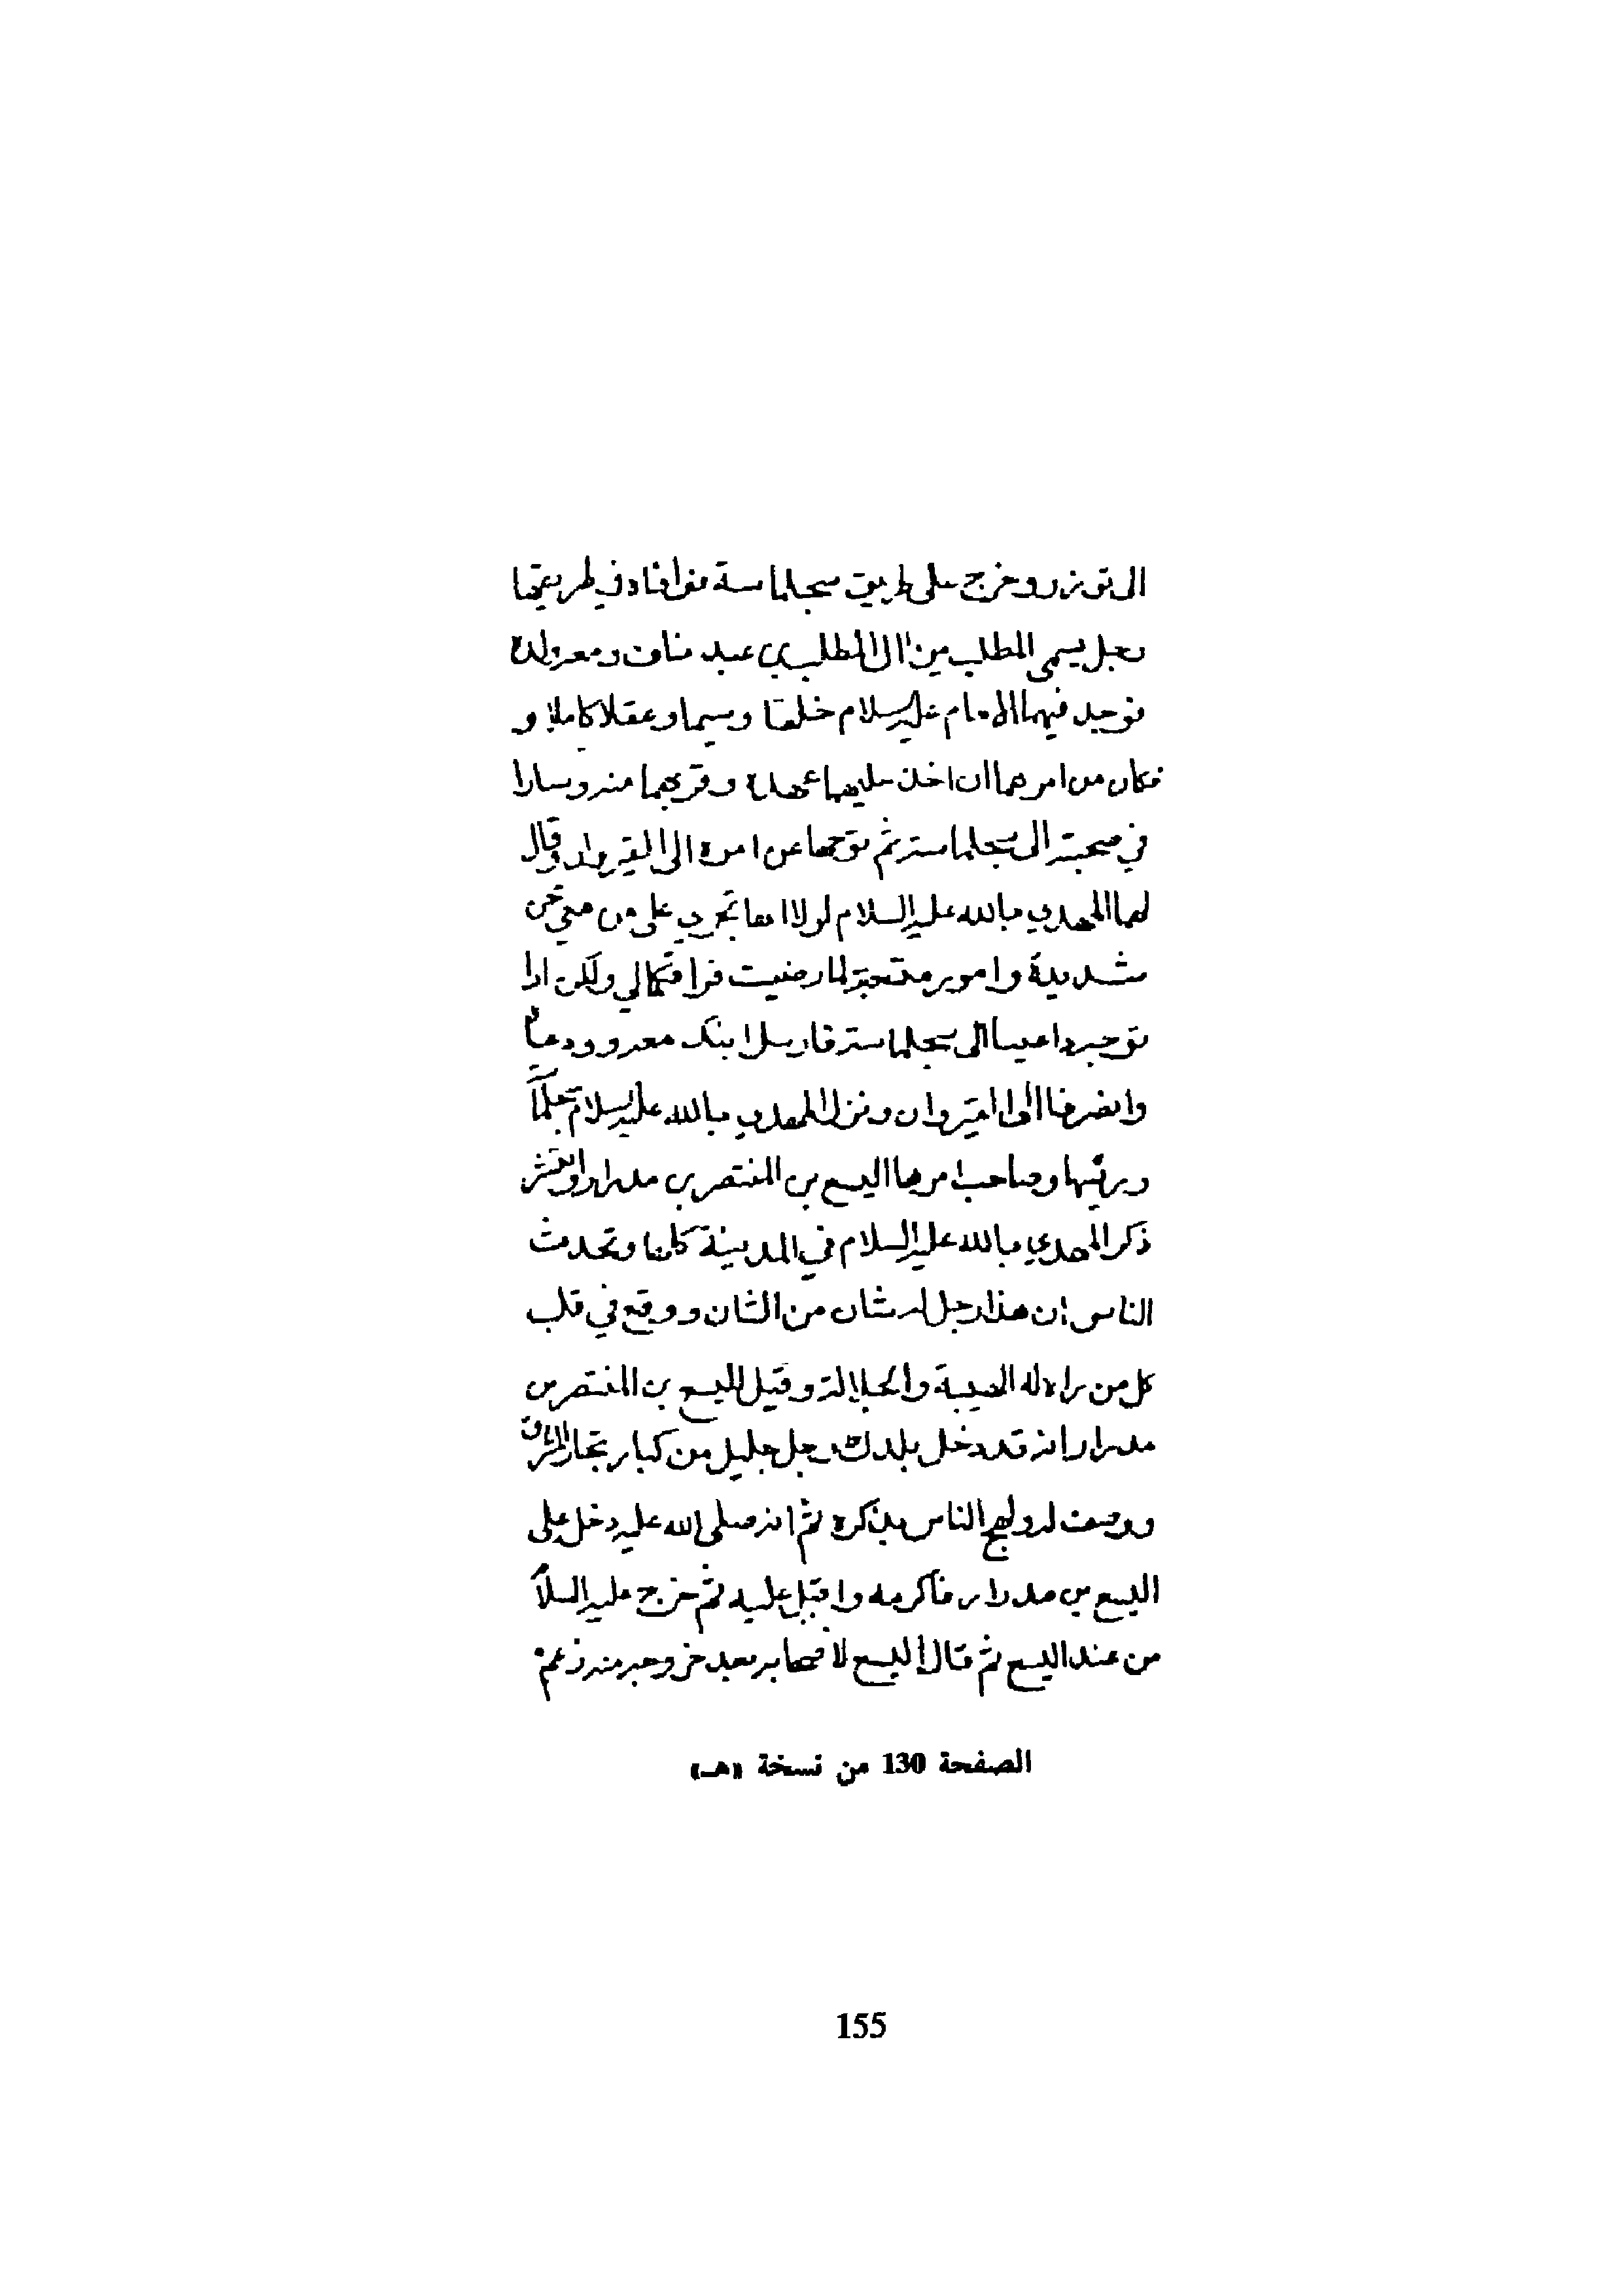 الى توزر وخرج على طريق سجلماسة فوافاه في طريقها
رجل يسمى المطلب من ال المطلب بن عبد مناف ومعه ولده
فوجد فيهما الامام عليه السلام خلقا وسيما وعقلا كاملا و
فكان من امرهما ان اخذ عليهما عهده وقربهما منه وسارا
في صحبته الى سجلماسة ثم توجها عن امره الى القيروان وقال
لهما المهدي بالله عليه السلام لولا انها تجري علي من محن
شديدة وامور لما رضيت فراقكما لي ولكن اذا
توجه داعينا الى سجلماسة فارسل ابنك معه وودعا
وانصرفا الى القيروان ونزل المهدي بالله عليه السلام سجلما
ورئيسها وصاحب امرها اليسع بن المنتصر بن مدرار وانتشر
ذكر المهدي بالله عليه السلام في المدينة كلها وتحدث
الناس ان هذا رجل له شان من الشان ووقع في قلب
كل من راه له الهيبة والجلالة وقيل لليسع بن المنتصر بن
مدرار انه قد دخل بلدك رجل جليل من كبار تجار المشرق
ووصف له ولهج الناس بذكره ثم انه صلى الله عليه دخل على
اليسع بن مدرار فأكرمه واقبل عليه ثم خرج عليه السلا
من عند اليسع ثم قال اليسع لاصحابه بعد خروجه منه زعم
الصفحة 130 من نسخة «هـ»
155